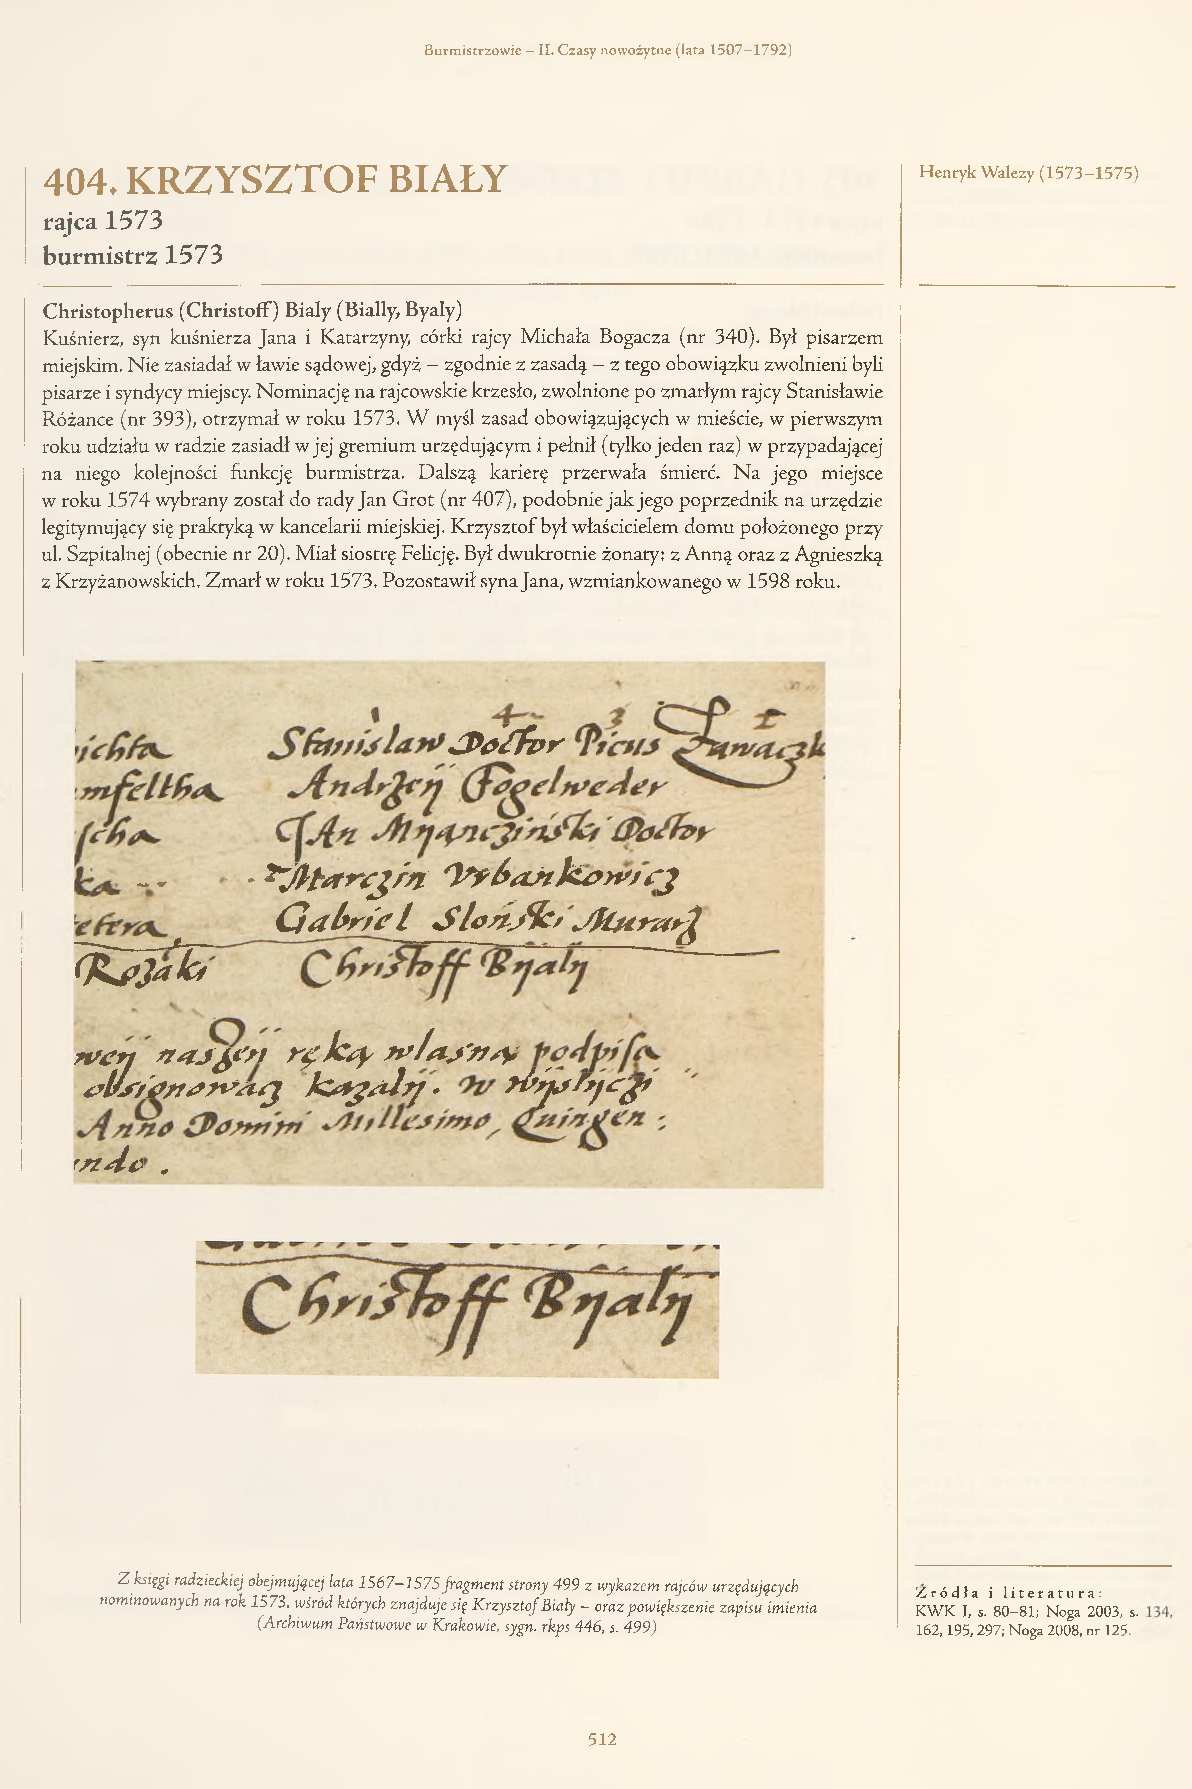 Burmistrzowie – II. Czasy nowożytne (lata 1507–1792)
404. KRZYSZTOF BIAŁY
rajca 1573
burmistrz 1573
Henryk Walezy (1573–1575)
Christopherus (Christoff) Bialy (Bially, Byaly)
Kuśnierz, syn kuśnierza Jana i Katarzyny, córki rajcy Michała Bogacza (nr 340). Był pisarzem
miejskim. Nie zasiadał w ławie sądowej, gdyż – zgodnie z zasadą – z tego obowiązku zwolnieni byli
pisarze i syndycy miejscy. Nominację na rajcowskie krzesło, zwolnione po zmarłym rajcy Stanisławie
Różance (nr 393), otrzymał w roku 1573. W myśl zasad obowiązujących w mieście, w pierwszym
roku udziału w radzie zasiadł w jej gremium urzędującym i pełnił (tylko jeden raz) w przypadającej
na niego kolejności funkcję burmistrza. Dalszą karierę przerwała śmierć. Na jego miejsce
w roku 1574 wybrany został do rady Jan Grot (nr 407), podobnie jak jego poprzednik na urzędzie
legitymujący się praktyką w kancelarii miejskiej. Krzysztof był właścicielem domu położonego przy
ul. Szpitalnej (obecnie nr 20). Miał siostrę Felicję. Był dwukrotnie żonaty: z Anną oraz z Agnieszką
z Krzyżanowskich. Zmarł w roku 1573. Pozostawił syna Jana, wzmiankowanego w 1598 roku.
Stanislaw Doctor Picus
Andrzeij Fogelweder
Jan Doctor
Marczin Vrbankowicz
Gabriel Sloński Murarz
Rozaki Christoff Bÿalÿ
weÿ naszeÿ ręką wlasną podpisa
obsignowacz kazalÿ. w
Anno Domini Millesimo, Quingen:
ndo.
Christoff Bÿalÿ
Z księgi radzieckiej obejmującej lata 1567–1575 fragment strony 499 z wykazem rajców urzędujących
nominowanych na rok 1573, wśród których znajduje się Krzysztof Biały – oraz powiększenie zapisu imienia
(Archiwum Państwowe w Krakowie, sygn. rkps 446, s. 499)
Źródła i literatura:
KWK I, s. 80–81; Noga 2003, s. 134,
162, 195, 297; Noga 2008, nr 125.
512